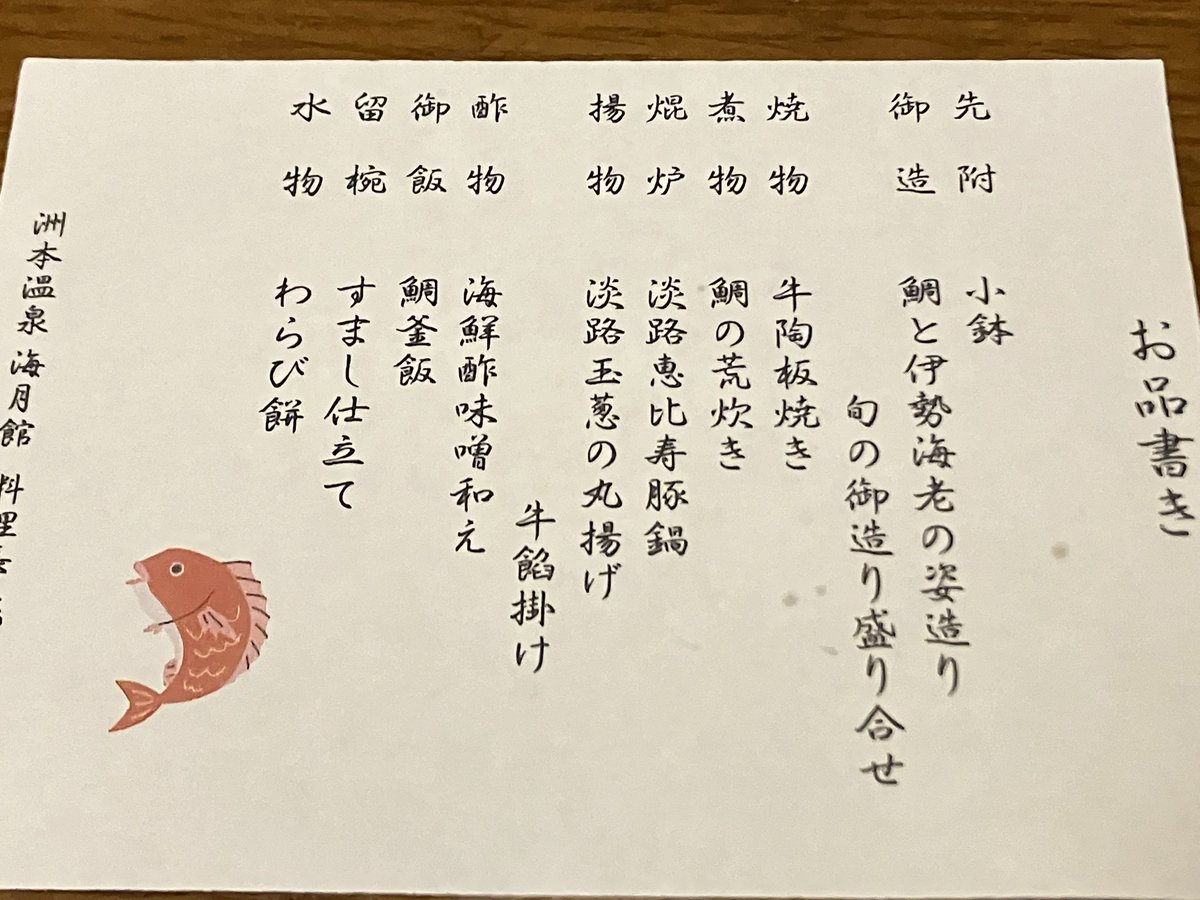 お品書き
先附 小鉢
御造 鯛と伊勢海老の姿造り
旬の御造り盛り合せ
焼物 牛陶板焼き
煮物 鯛の荒炊き
焜炉 淡路恵比寿豚鍋
揚物 淡路玉葱の丸揚げ
牛餡掛け
酢物 海鮮酢味噌和え
御飯 鯛釜飯
留椀 すまし仕立て
水物 わらび餅
洲本温泉 海月館 料理長